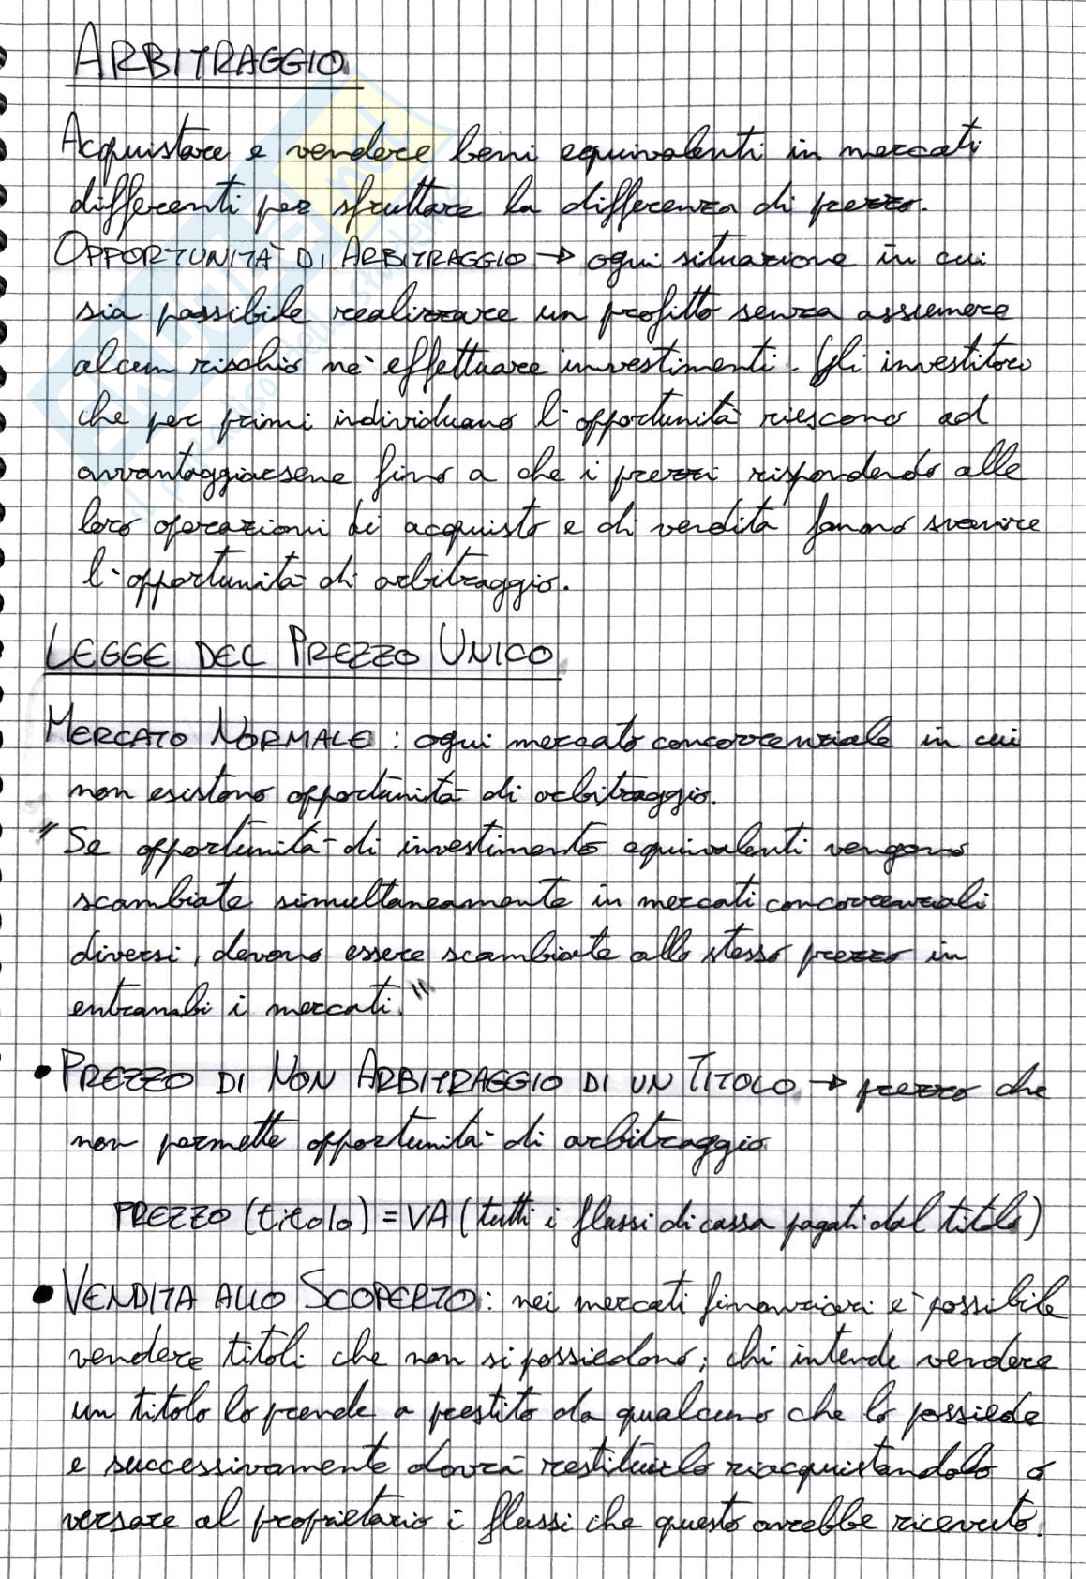 ARBITRAGGIO
Acquistare e vendere beni equivalenti in mercati
differenti per sfruttare la differenza di prezzo.
OPPORTUNITÀ DI ARBITRAGGIO → ogni situazione in cui
sia possibile realizzare un profitto senza assumere
alcun rischio nè effettuare investimenti. Gli investitori
che per primi individuano l'opportunità riescono ad
avvantaggiarsene fino a che i prezzi rispondendo alle
loro operazioni di acquisto e di vendita fanno svanire
l'opportunità di arbitraggio.
LEGGE DEL PREZZO UNICO
MERCATO NORMALE : ogni mercato concorrenziale in cui
non esistono opportunità di arbitraggio.
"Se opportunità di investimento equivalenti vengono
scambiate simultaneamente in mercati concorrenziali
diversi, devono essere scambiate allo stesso prezzo in
entrambi i mercati."
• PREZZO DI NON ARBITRAGGIO DI UN TITOLO → prezzo che
non permette opportunità di arbitraggio
PREZZO (titolo) = VA (tutti i flussi di cassa pagati dal titolo)
• VENDITA ALLO SCOPERTO : nei mercati finanziari è possibile
vendere titoli che non si possiedono; chi intende vendere
un titolo lo prende a prestito da qualcuno che lo possiede
e successivamente dovrà restituirlo riacquistandolo o
versare al proprietario i flussi che questo avrebbe ricevuto.